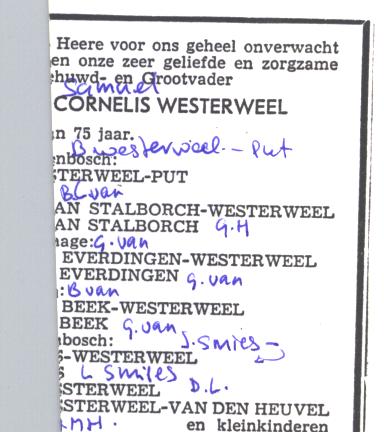 Heere voor ons geheel onverwacht
en onze zeer geliefde en zorgzame
huwd- en Grootvader
Samuel
CORNELIS WESTERWEEL
n 75 jaar.
B westerweel - Put
nbosch:
TERWEEL-PUT
van
AN STALBORCH-WESTERWEEL
AN STALBORCH G.H
hage: G. van
EVERDINGEN-WESTERWEEL
EVERDINGEN G. van
: B van
BEEK-WESTERWEEL
BEEK G. van
bosch: J. Smies -
S-WESTERWEEL
S L Smies
STERWEEL D.L.
STERWEEL-VAN DEN HEUVEL
en kleinkinderen